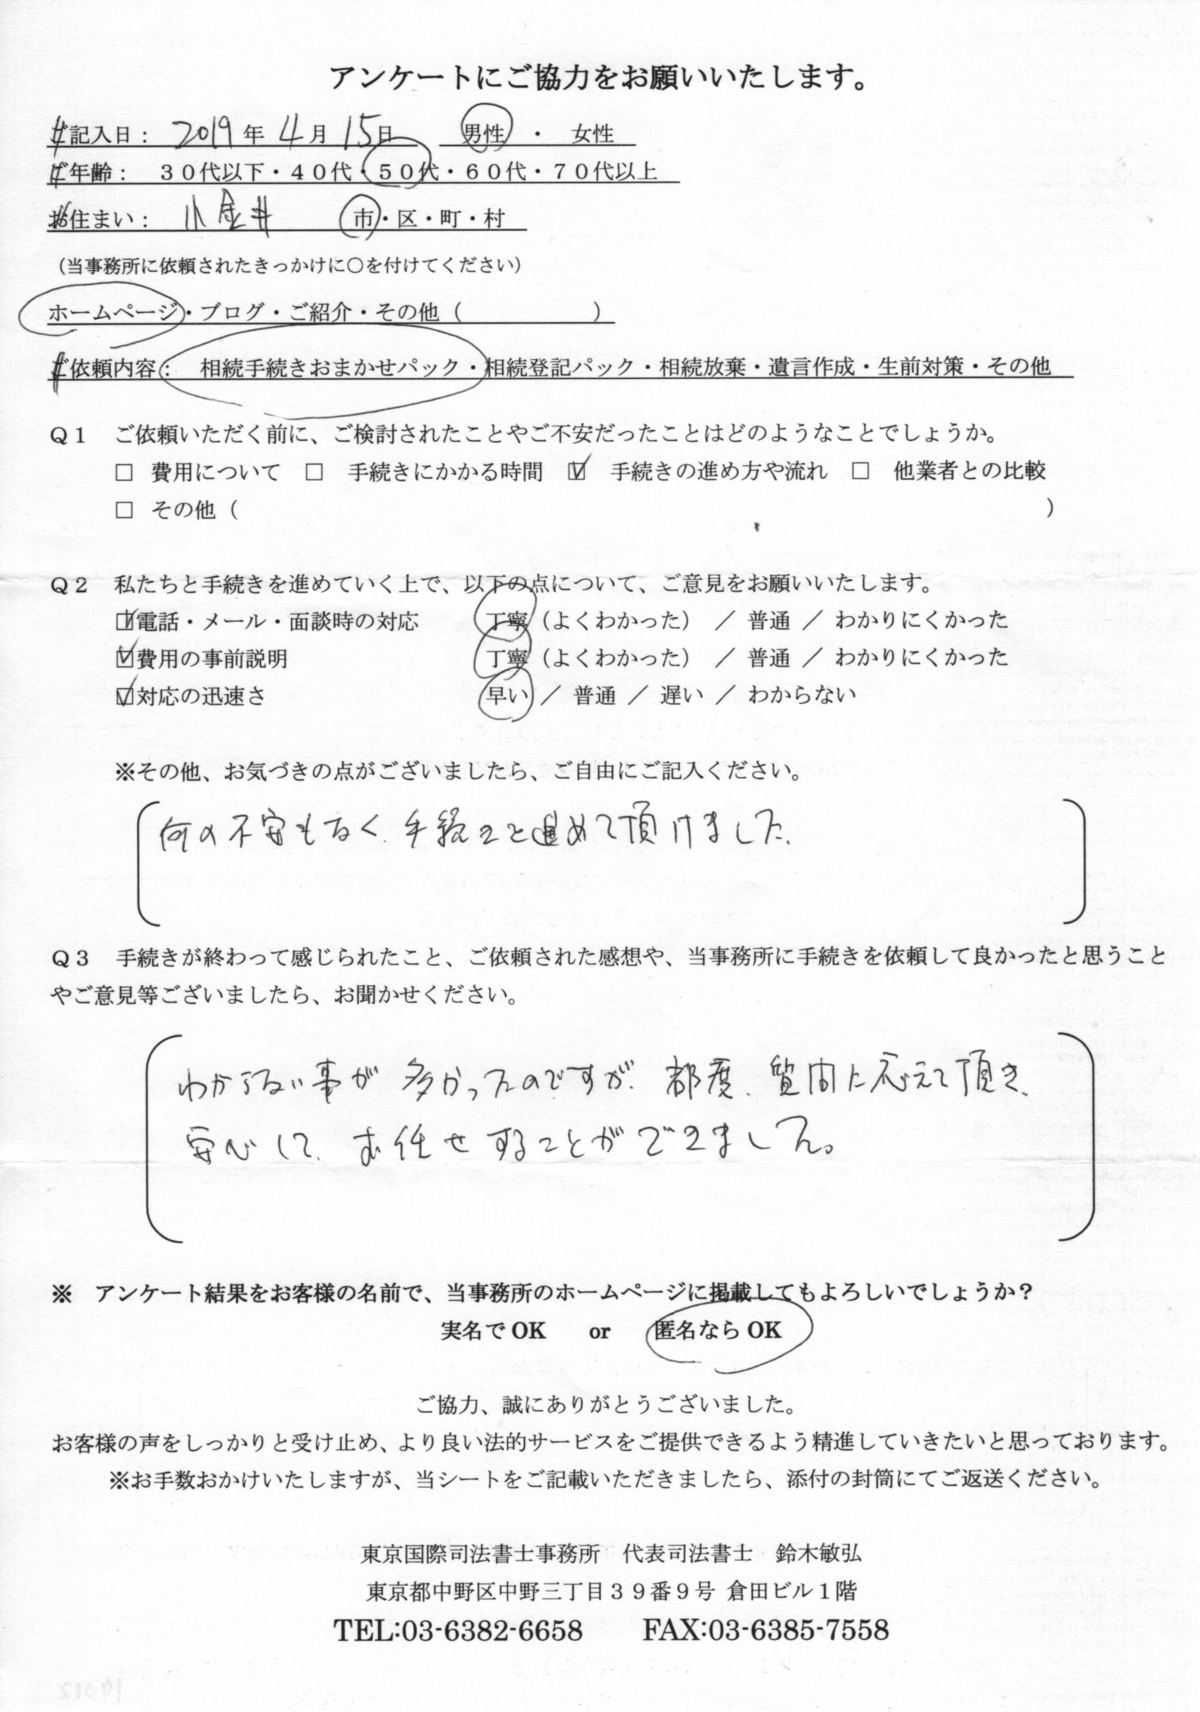 アンケートにご協力をお願いいたします。
ご記入日： 2019年 4月 15日 男性 ・ 女性
ご年齢： ３０代以下・４０代・５０代・６０代・７０代以上
お住まい： 小金井 市・区・町・村
（当事務所に依頼されたきっかけに○を付けてください）
ホームページ・ブログ・ご紹介・その他（ ）
ご依頼内容： 相続手続きおまかせパック・相続登記パック・相続放棄・遺言作成・生前対策・その他
Ｑ１ ご依頼いただく前に、ご検討されたことやご不安だったことはどのようなことでしょうか。
□ 費用について □ 手続きにかかる時間 ☑ 手続きの進め方や流れ □ 他業者との比較
□ その他（ ）
Ｑ２ 私たちと手続きを進めていく上で、以下の点について、ご意見をお願いいたします。
☑電話・メール・面談時の対応 丁寧（よくわかった） ／ 普通 ／ わかりにくかった
☑費用の事前説明 丁寧（よくわかった） ／ 普通 ／ わかりにくかった
☑対応の迅速さ 早い ／ 普通 ／ 遅い ／ わからない
※その他、お気づきの点がございましたら、ご自由にご記入ください。
何の不安もなく、手続きを進めて頂けました。
Ｑ３ 手続きが終わって感じられたこと、ご依頼された感想や、当事務所に手続きを依頼して良かったと思うこと
やご意見等ございましたら、お聞かせください。
わからない事が多かったのですが、都度、質問に応えて頂き、
安心して、お任せすることができました。
※ アンケート結果をお客様の名前で、当事務所のホームページに掲載してもよろしいでしょうか？
実名でOK or 匿名ならOK
ご協力、誠にありがとうございました。
お客様の声をしっかりと受け止め、より良い法的サービスをご提供できるよう精進していきたいと思っております。
※お手数おかけいたしますが、当シートをご記載いただきましたら、添付の封筒にてご返送ください。
東京国際司法書士事務所 代表司法書士 鈴木敏弘
東京都中野区中野三丁目３９番９号 倉田ビル１階
TEL:03-6382-6658 FAX:03-6385-7558